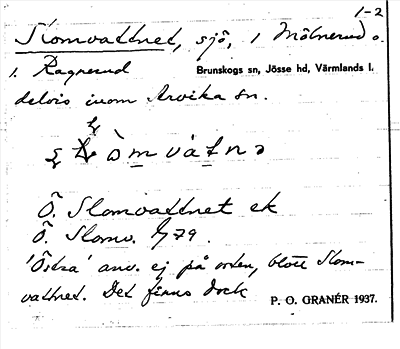 1-2
Slomvattnet, sjö, 1 Mölnerud o.
1. Ragnerud Brunskogs sn, Jösse hd, Värmlands l.
delvis inom Arvika sn.
Ö. Slomvattnet ek
Ö. Slomv. G 79.
'Östra' anv. ej på orten, blott Slom-
vattnet. Det finns dock
P. O. GRANÉR 1937.